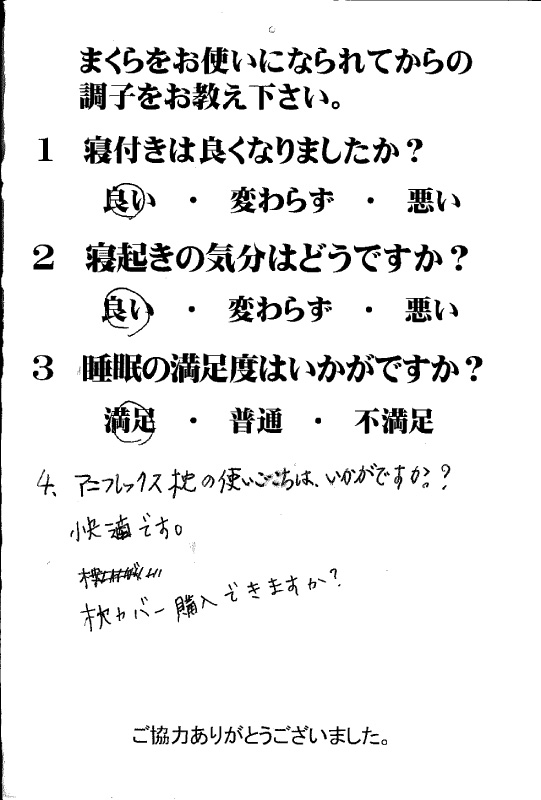 まくらをお使いになられてからの
調子をお教え下さい。
1 寝付きは良くなりましたか？
良い ・ 変わらず ・ 悪い
2 寝起きの気分はどうですか？
良い ・ 変わらず ・ 悪い
3 睡眠の満足度はいかがですか？
満足 ・ 普通 ・ 不満足
4、アニフレックス枕の使いごこちは、いかがですか？？
快適です。
枕カバー購入できますか？
ご協力ありがとうございました。